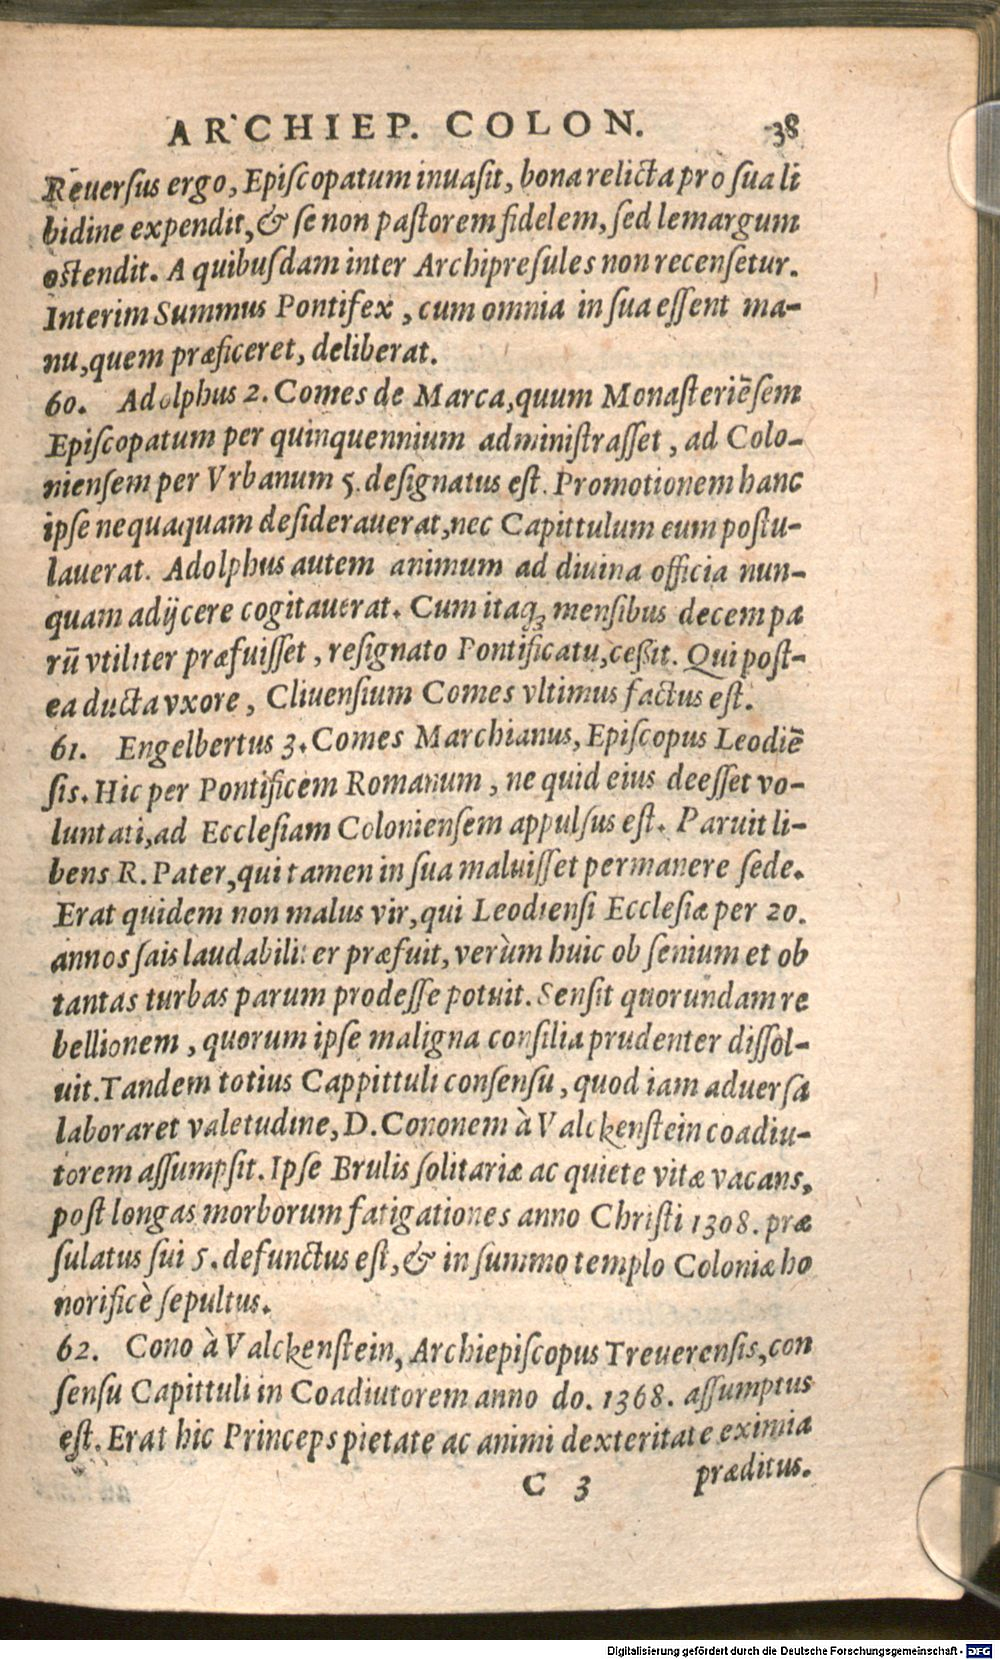 ARCHIEP. COLON. 38
Reuerſus ergo, Epiſcopatum inuaſit, bona relicta pro ſua li
bidine expendit, & ſe non paſtorem fidelem, ſed lemargum
oſtendit. A quibuſdam inter Archipreſules non recenſetur.
Interim Summus Pontifex, cum omnia in ſua eſſent ma-
nu, quem præficeret, deliberat.
60. Adolphus 2. Comes de Marca, quum Monaſteriēſem
Epiſcopatum per quinquennium adminiſtraſſet, ad Colo-
nienſem per Vrbanum 5. deſignatus eſt. Promotionem hanc
ipſe nequaquam deſiderauerat, nec Capittulum eum poſtu-
lauerat. Adolphus autem animum ad diuina officia nun-
quam adijcere cogitauerat. Cum itaqꝫ menſibus decem pa
rū vtiliter præfuiſſet, reſignato Pontificatu, ceßit. Qui poſt-
ea ducta vxore, Cliuenſium Comes vltimus factus eſt.
61. Engelbertus 3. Comes Marchianus, Epiſcopus Leodiē
ſis. Hic per Pontificem Romanum, ne quid eius deeſſet vo-
luntati, ad Eccleſiam Colonienſem appulſus eſt. Paruit li-
bens R. Pater, qui tamen in ſua maluiſſet permanere ſede.
Erat quidem non malus vir, qui Leodienſi Eccleſiæ per 20.
annos ſais laudabiliter præfuit, verùm huic ob ſenium et ob
tantas turbas parum prodeſſe potuit. Senſit quorundam re
bellionem, quorum ipſe maligna conſilia prudenter diſſol-
uit. Tandem totius Cappittuli conſenſu, quod iam aduerſa
laboraret valetudine, D. Cononem à Valckenſtein coadiu-
torem aſſumpſit. Ipſe Brulis ſolitariæ ac quiete vitæ vacans,
poſt longas morborum fatigationes anno Chriſti 1308. præ
ſulatus ſui 5. defunctus eſt, & in ſummo templo Coloniæ ho
norificè ſepultus.
62. Cono à Valckenſtein, Archiepiſcopus Treuerenſis, con
ſenſu Capittuli in Coadiutorem anno do. 1368. aſſumptus
eſt. Erat hic Princeps pietate ac animi dexteritate eximia
C 3 præditus.
Digitalisierung gefördert durch die Deutsche Forschungsgemeinschaft - DFG